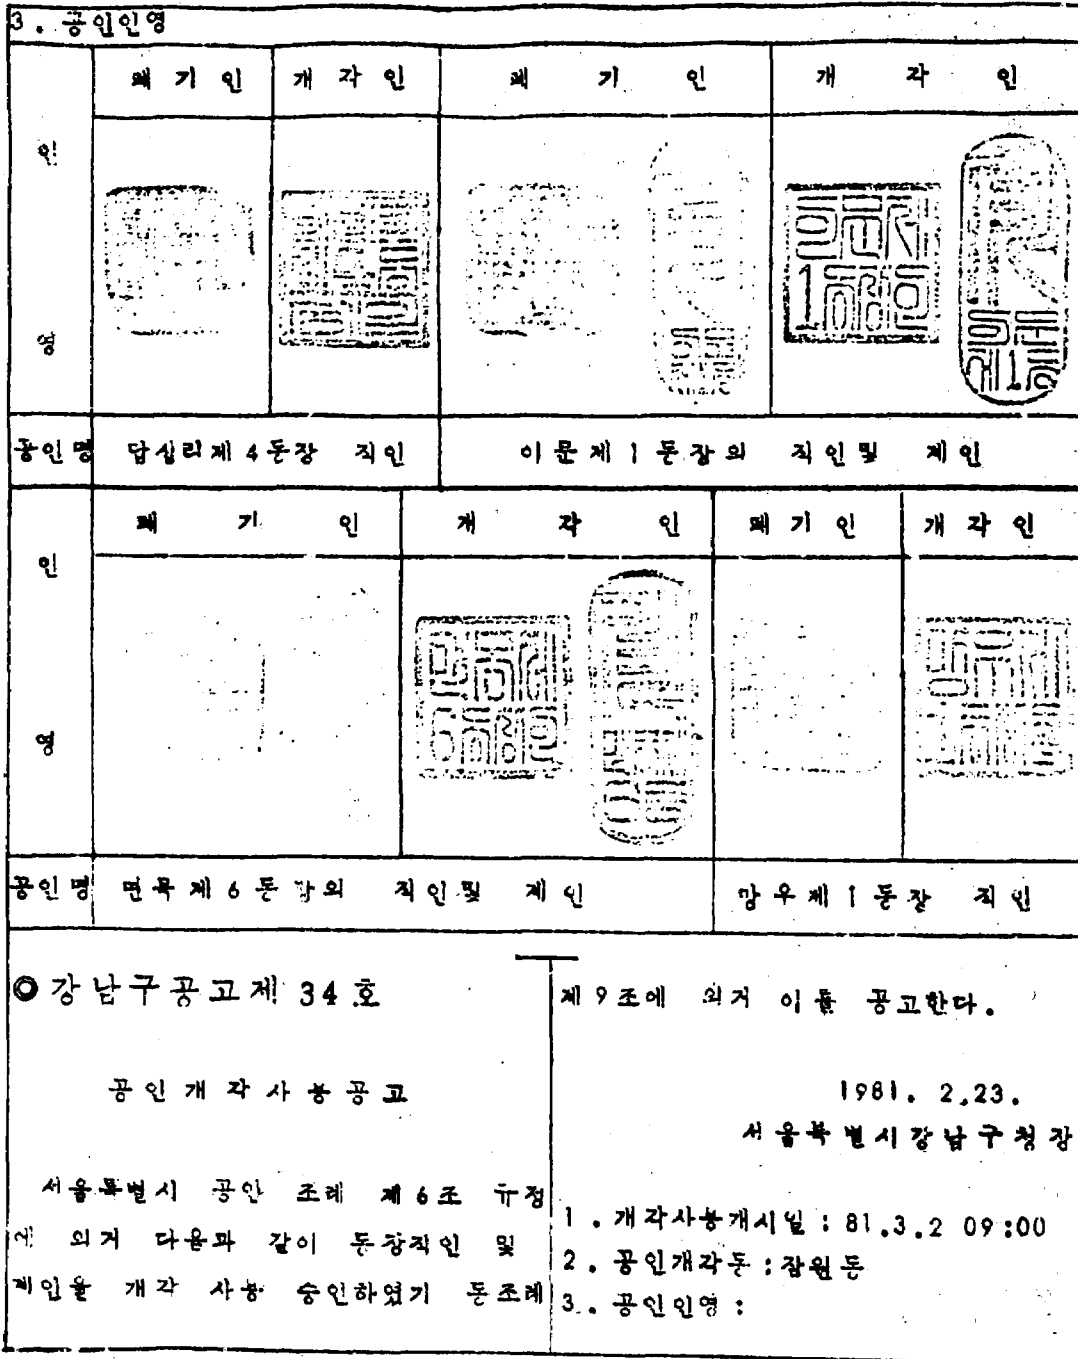 3. 공인인영
폐기인 개각인 폐기인 개각인
인
영
공인명 답십리제4동장 직인 이문제1동장의 직인및 계인
폐기인 개각인 폐기인 개각인
인
영
공인명 면목제6동장의 직인및 계인 망우제1동장 직인
◎강남구공고제34호
공인개각사용공고
서울특별시 공인 조례 제6조 규정
에 의거 다음과 같이 동장직인 및
계인을 개각 사용 승인하였기 동조례
제9조에 의거 이를 공고한다.
1981. 2.23.
서울특별시강남구청장
1. 개각사용개시일 : 81.3.2 09:00
2. 공인개각동 : 잠원동
3. 공인인영 :